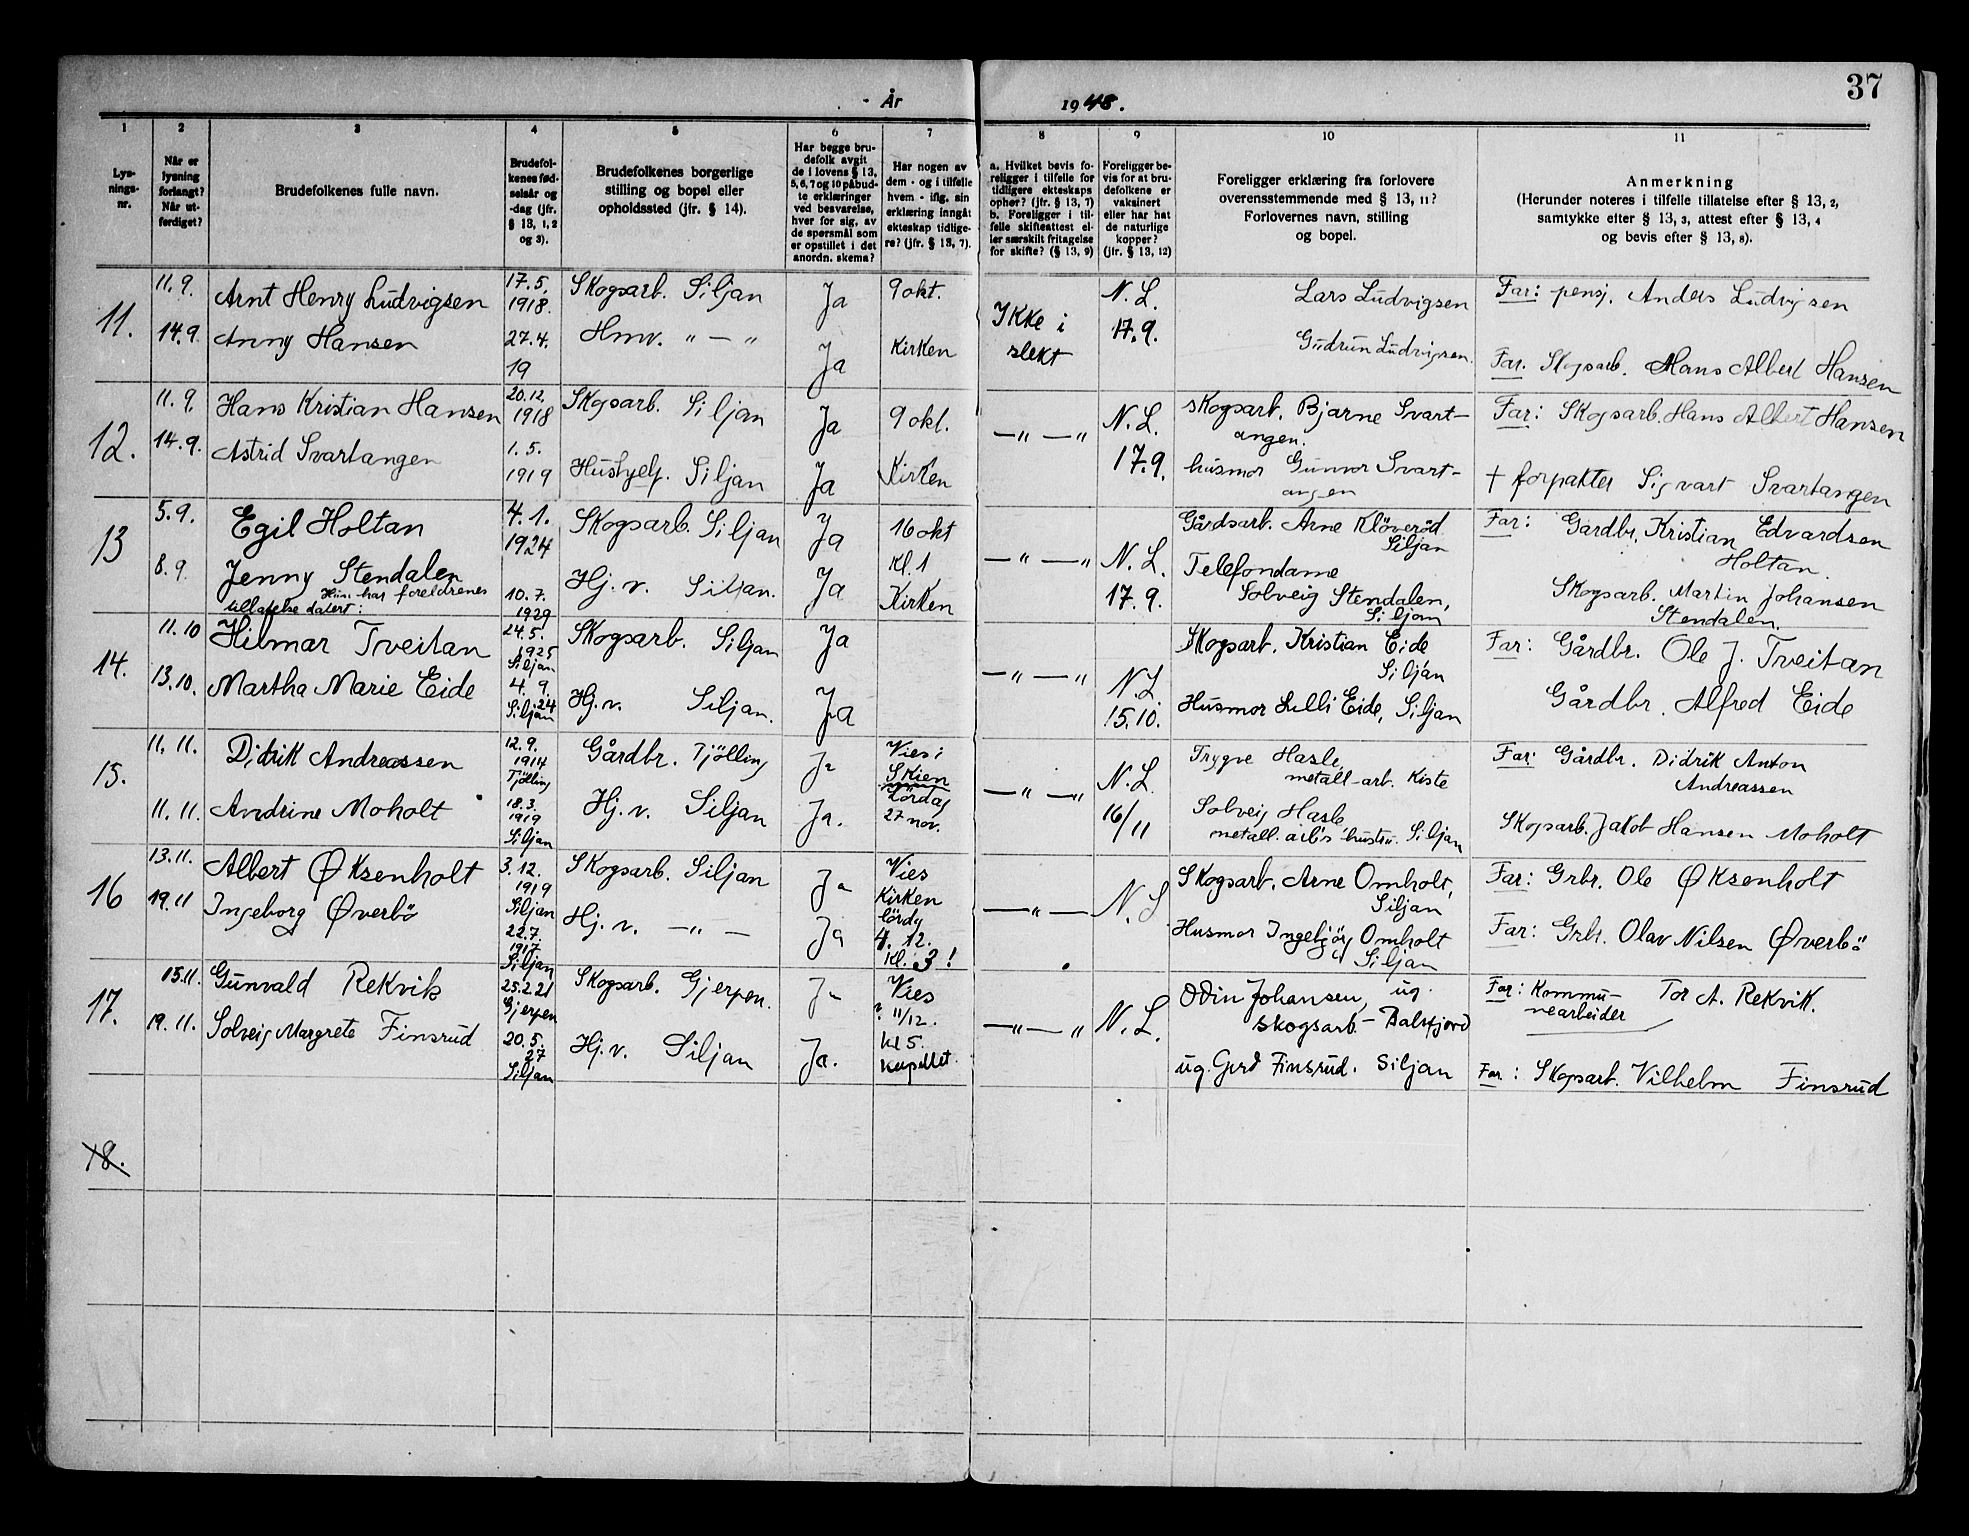 År 1948.
37
1 2 3 4 5 6 7 8 9 10 11
Lys-
nings-
nr.
Når er
lysning
forlangt?
Når ut-
ferdiget?
Brudefolkenes fulle navn.
Brudefol-
kenes fød-
selsår og
-dag (jfr.
§ 13, 1, 2
og 3).
Brudefolkenes borgerlige
stilling og bopel eller
opholdssted (jfr. § 14).
Har begge bru-
defolk avgit
de i lovens § 13,
5, 6, 7 og 10 påbud-
te erklæringer
ved besvarelse,
hver for sig, av
de spørsmål som
er opstillet i det
anordn. skema?
Har nogen av
dem - og i tilfelle
hvem - iflg. sin
erklæring inngåt
ekteskap tidlige-
re? (jfr. § 13, 7).
a. Hvilket bevis fo-
religger i tilfelle for
tidligere ekteskaps
ophør? (jfr. § 13, 7)
b. Foreligger i til-
felle skifteattest el-
ler særskilt fritagelse
for skifte? (§ 13, 9)
Foreligger be-
vis for at bru-
defolkene er
vaksinert
eller har hat
de naturlige
kopper?
(jfr. § 13, 12)
Foreligger erklæring fra forlovere
overensstemmende med § 13, 11?
Forlovernes navn, stilling
og bopel.
Anmerkning
(Herunder noteres i tilfelle tillatelse efter § 13, 2,
samtykke efter § 13, 3, attest efter § 13, 4
og bevis efter § 13, 8).
11.
11.9. Arnt Henry Ludvigsen 17.5. 1918. Skogsarb. Siljan Ja 9 okt.
14.9. Anny Hansen 27.4. 19 Hmv. " — " Ja Kirken
Ikke i
slekt
N. L.
17.9.
Lars Ludvigsen
Gudrun Ludvigsen.
Far: pensj. Anders Ludvigsen
Far. Skogsarb. Hans Albert Hansen
12.
11.9. Hans Kristian Hansen 20.12. 1918 Skogsarb. Siljan Ja 9 okt.
14.9. Astrid Svartangen 1.5. 1919 Hushjelp. Siljan Ja Kirken
—"—"
N. L.
17.9.
Skogsarb. Bjarne Svart-
angen.
husmor Gunvor Svart-
angen
Far: Skogsarb. Hans Albert Hansen
† forpakter Sigvart Svartangen
13
5.9. Egil Holtan 4.1. 1924 Skogsarb. Siljan Ja 16 okt
8.9. Jenny Stendalen 10.7. 1929 Hj. v. Siljan. Ja Kl. 1
Kirken
Hun har foreldrenes
tillatelse datert:
—"—"
N. L.
17.9.
Gårdsarb. Arne Kløverød
Siljan
Telefondame
Solveig Stendalen,
Siljan
Far: Gårdbr. Kristian Edvardsen
Holtan.
Skogsarb. Martin Johansen
Stendalen.
14.
11.10 Hilmar Tveitan 24.5. 1925 Siljan Skogsarb. Siljan Ja
13.10. Martha Marie Eide 4.9. 24 Siljan Hj. v. Siljan. Ja
—"—"
N. L.
15.10.
Skogsarb. Kristian Eide
Siljan
Husmor Lilli Eide, Siljan
Far: Gårdbr. Ole J. Tveitan
Gårdbr. Alfred Eide
15.
11.11. Didrik Andreassen 12.9. 1914 Tjølling Gårdbr. Tjølling Ja Vies i
Skien
11.11. Andrine Moholt 18.3. 1919 Siljan Hj. v. Siljan Ja. Lördag
27 nov.
—"—"
N. L.
16/11
Trygve Hasle,
metall-arb. Kiste
Solveig Hasle
metall. arb's hustru. Siljan
Far: Gårdbr. Didrik Anton
Andreassen
Skogsarb. Jakob Hansen Moholt
16
13.11. Albert Øksenholt 3.12. 1919 Siljan Skogsarb. Siljan Ja Vies
Kirken
19.11 Ingeborg Øverbö 22.7. 1917 Siljan Hj. v. —"— Ja lördg
4. 12.
Kl. 3!
—"—
N. L
Skogsarb. Arne Omholt,
Siljan
Husmor Ingebjörg Omholt
Siljan
Far: Grbr. Ole Øksenholt
Far: Grbr. Olav Nilsen Øverbö
17.
15.11. Gunvald Rekvik 25.2.21 Gjerpen Skogsarb. Gjerpen. Ja Vies
11/12.
19.11. Solveig Margrete Finsrud 20.5. 27 Siljan Hj. v. Siljan Ja. kl 5.
Kapellet.
—"—"
N. L.
Odin Johansen, ug.
skogsarb. – Balsfjord
ug. Gerd Finsrud. Siljan
Far: Kommu-
nearbeider Tor A. Rekvik.
Far: Skogsarb. Vilhelm Finsrud
18.